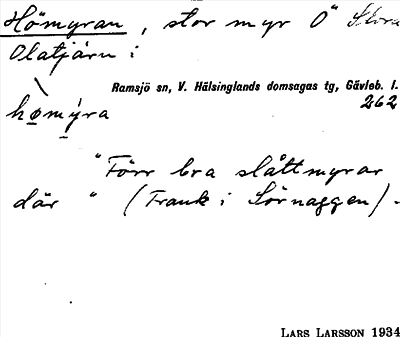 Hömyran, stor myr Ö Stora
Olatjärn :
Ramsjö sn, V. Hälsinglands domsagas tg, Gävleb. l.
262
hømýra
"Förr bra slåttmyrar
där " (Frank i Sörnaggen).
LARS LARSSON 1934